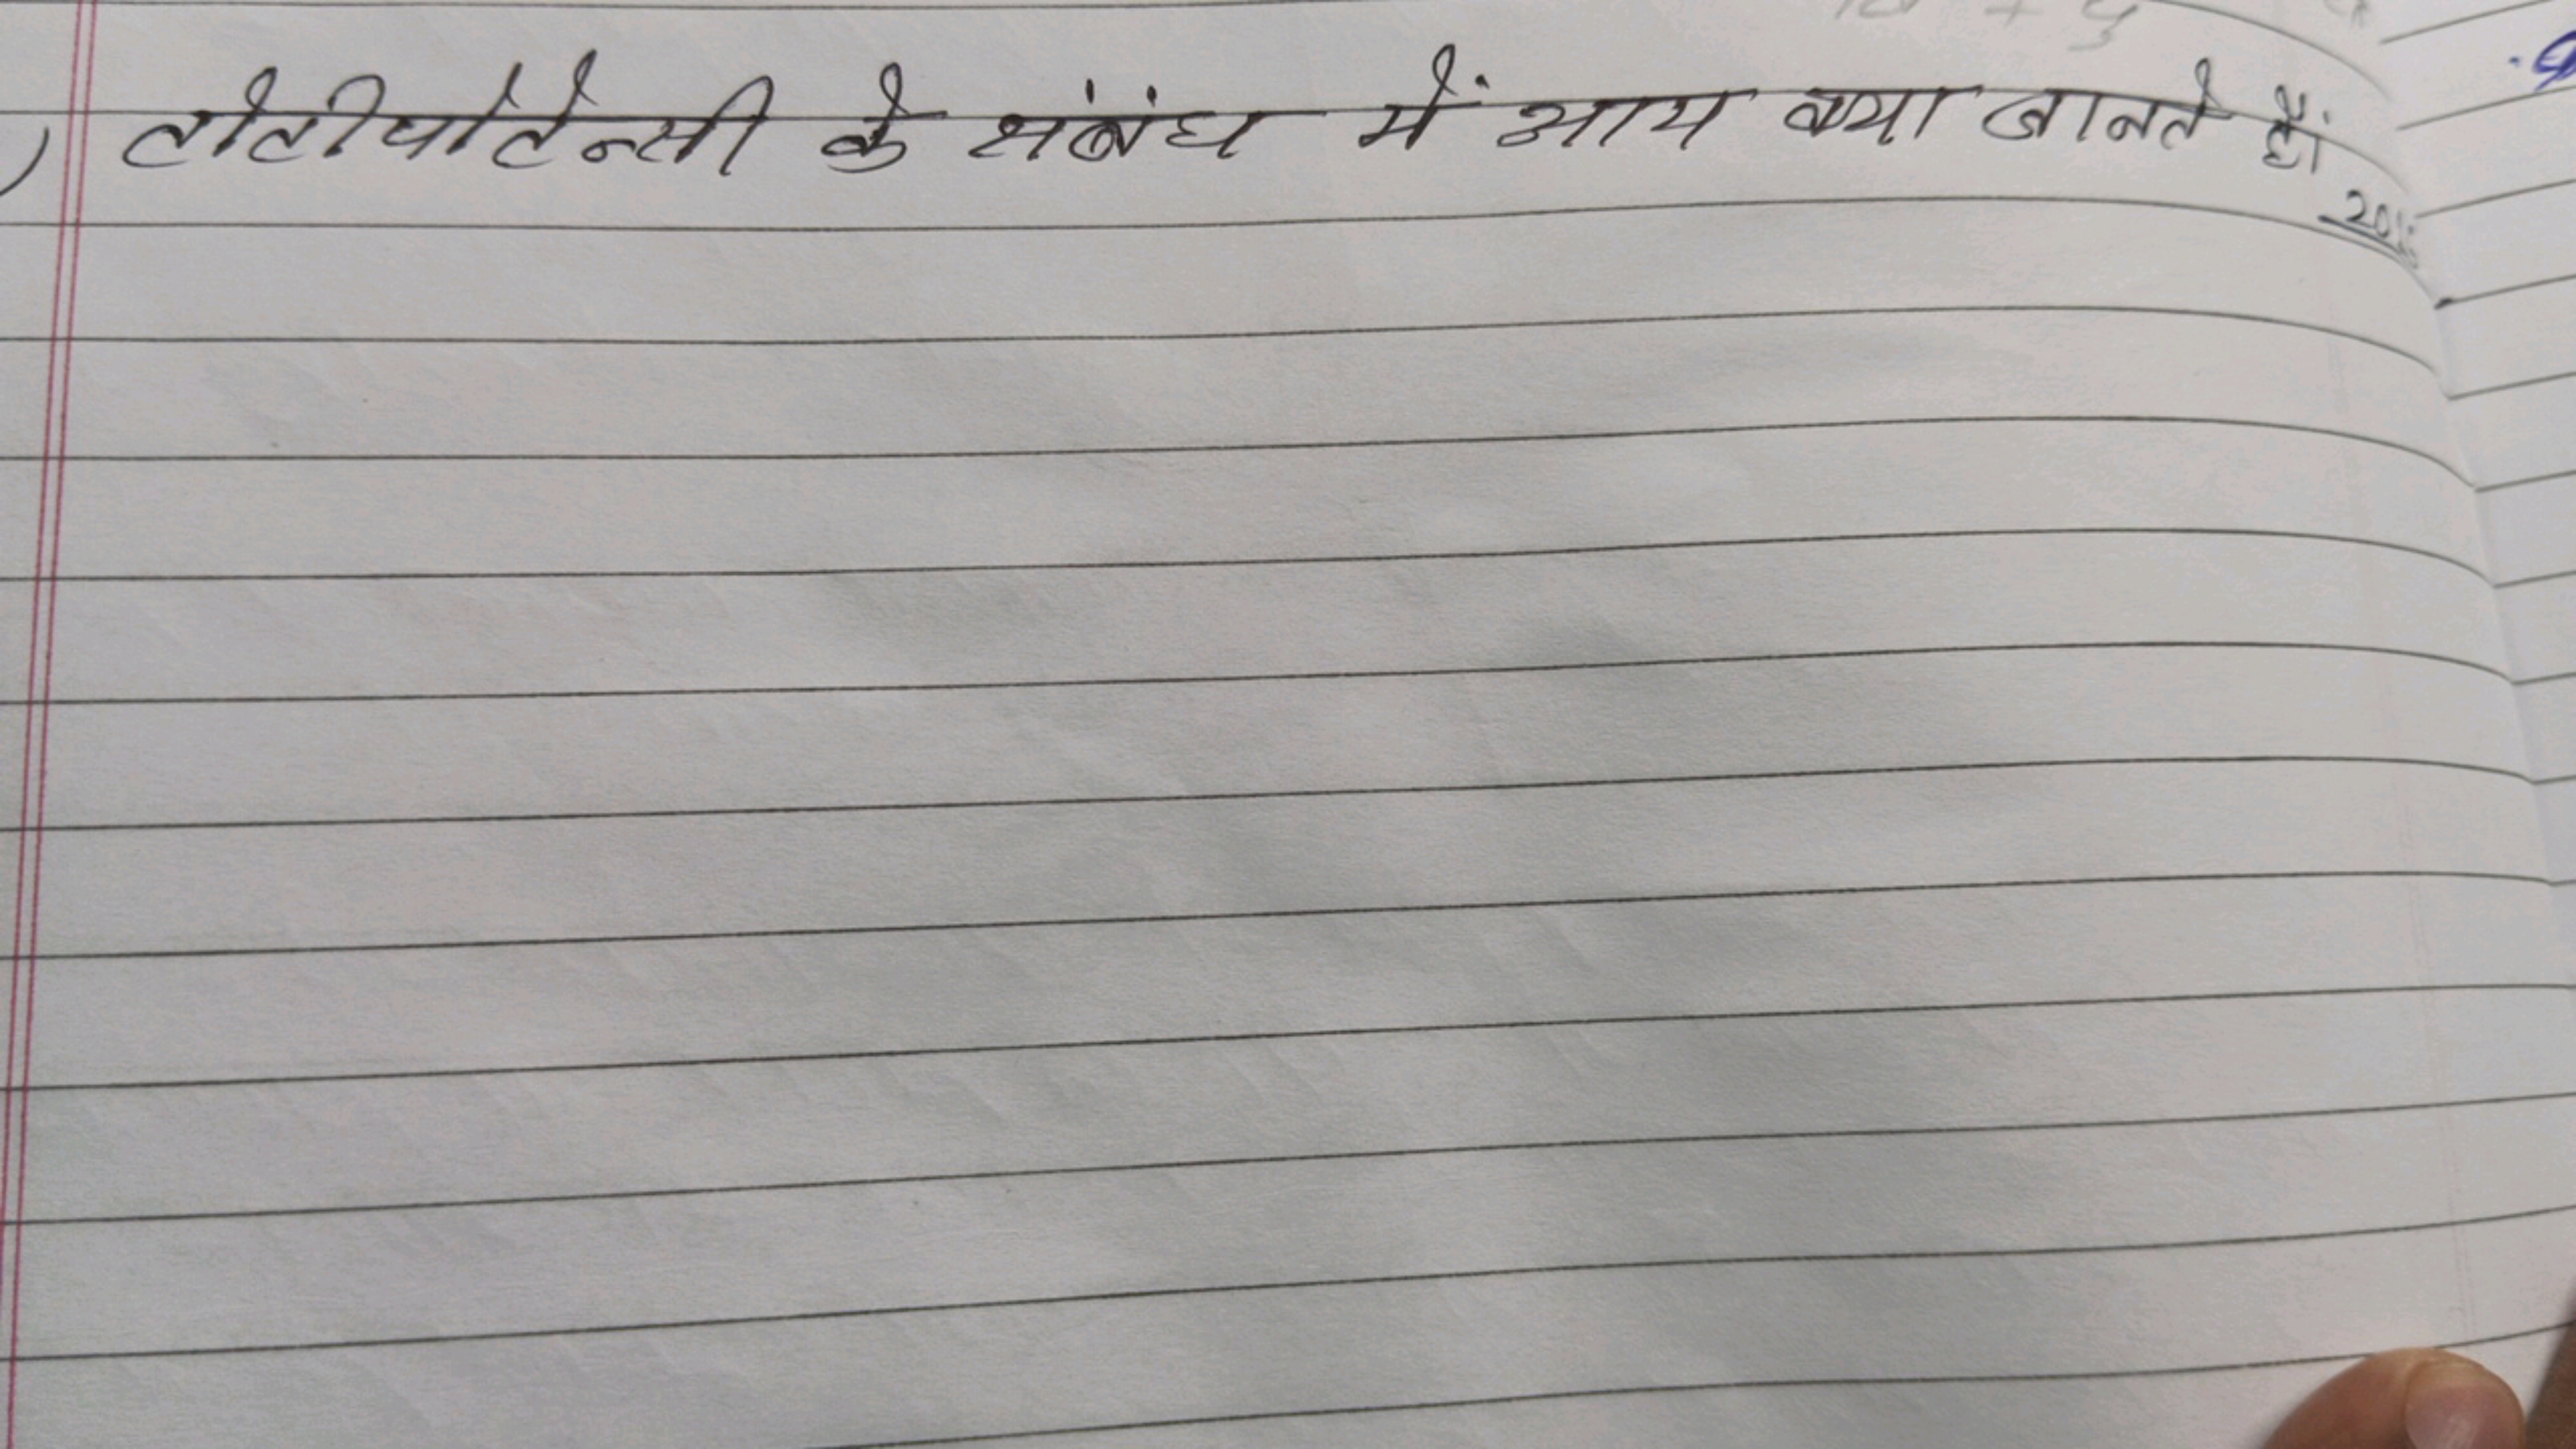 टोटीपोटेन्सी के संबंध में आप क्या जानते हैं।